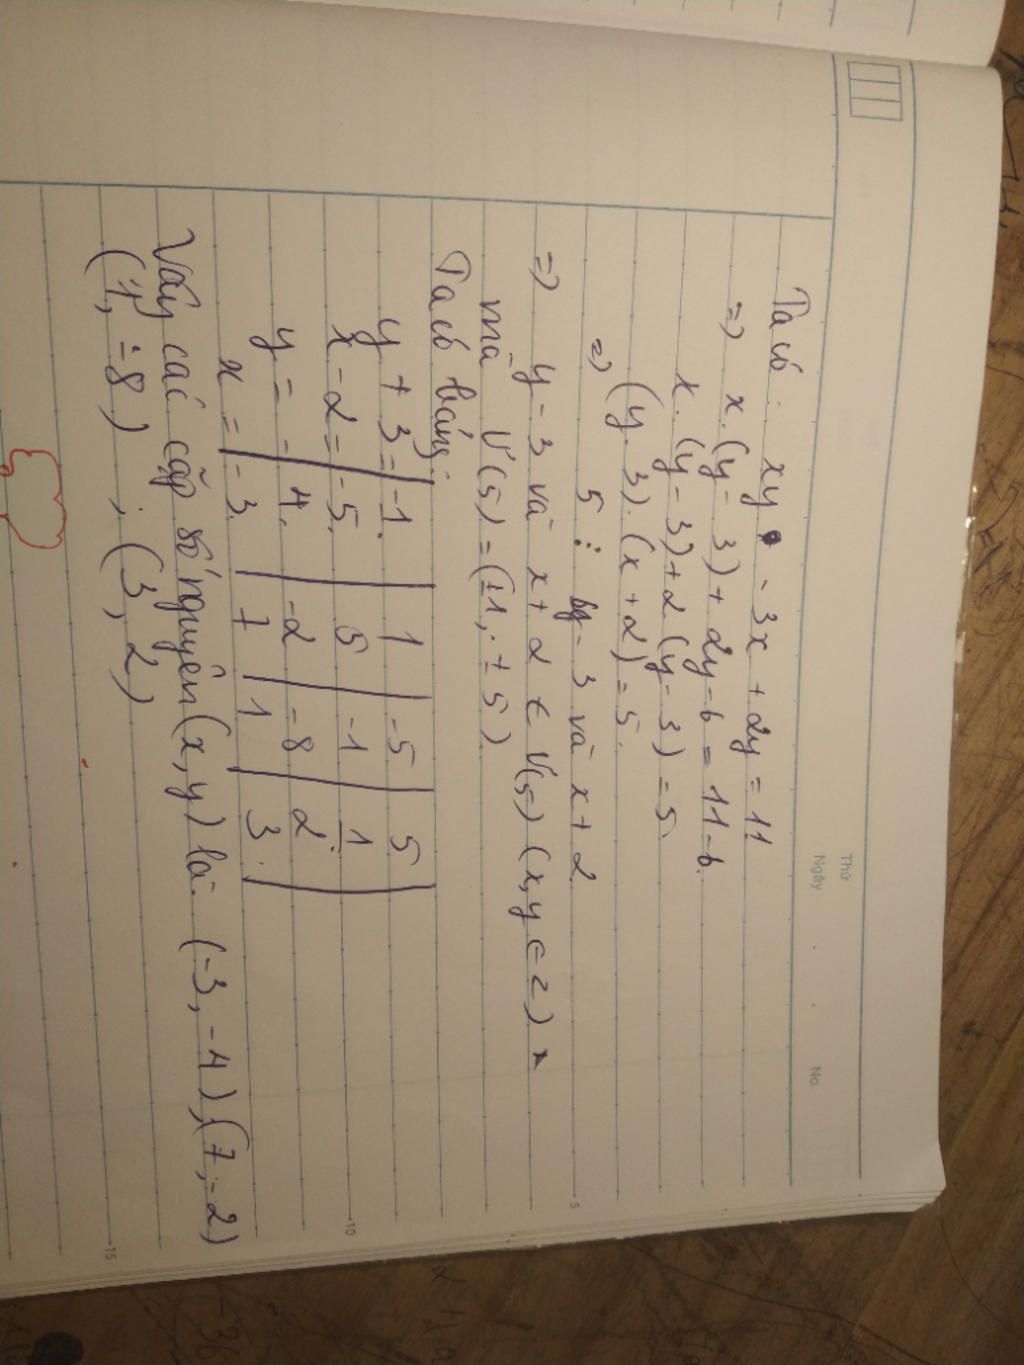 Thứ
Ngày
No
Ta có: xy - 3x + 2y = 11
=> x.(y - 3) + 2y - 6 = 11 - 6.
x.(y - 3) + 2(y - 3) = 5.
(y 3).(x + 2) = 5.
=> 5 ⋮ y - 3 và x + 2
=> y - 3 và x + 2 ∈ Ư(5) (x, y ∈ Z)
mà Ư(5) = (±1, ± 5)
Ta có bảng:
y + 3 = | -1. | 1 | -5 | 5
x - 2 = | -5. | 5 | -1 | 1
y = | -4. | -2 | -8 | 2
x = | -3. | 7 | 1 | 3
Vậy các cặp số nguyên (x, y) là (-3, -4), (7, -2)
(1, -8) ; (3, 2)
5
10
15